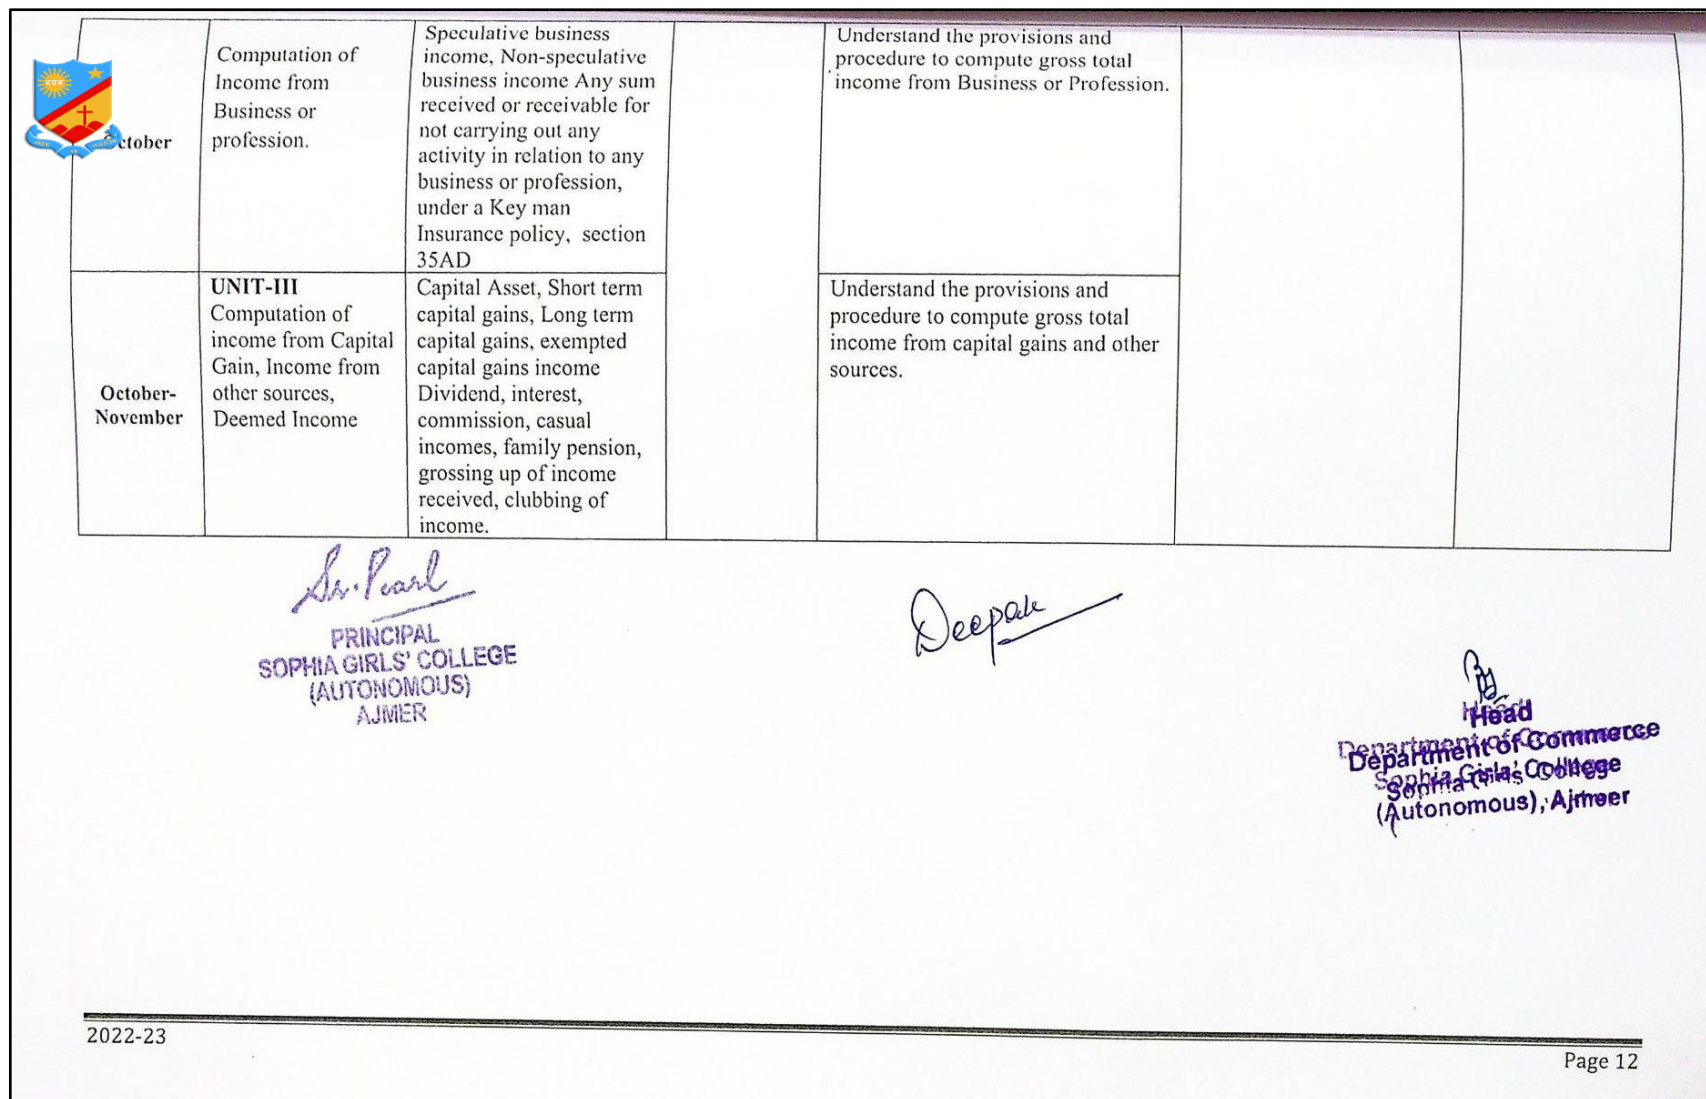 October
Computation of
Income from
Business or
profession.
Speculative business
income, Non-speculative
business income Any sum
received or receivable for
not carrying out any
activity in relation to any
business or profession,
under a Key man
Insurance policy, section
35AD
Understand the provisions and
procedure to compute gross total
income from Business or Profession.
October-
November
UNIT-III
Computation of
income from Capital
Gain, Income from
other sources,
Deemed Income
Capital Asset, Short term
capital gains, Long term
capital gains, exempted
capital gains income
Dividend, interest,
commission, casual
incomes, family pension,
grossing up of income
received, clubbing of
income.
Understand the provisions and
procedure to compute gross total
income from capital gains and other
sources.
Sr. Pearl
PRINCIPAL
SOPHIA GIRLS' COLLEGE
(AUTONOMOUS)
AJMER
Deepak
Head
Department of Commerce
Sophia Girls' College
(Autonomous), Ajmer
2022-23
Page 12